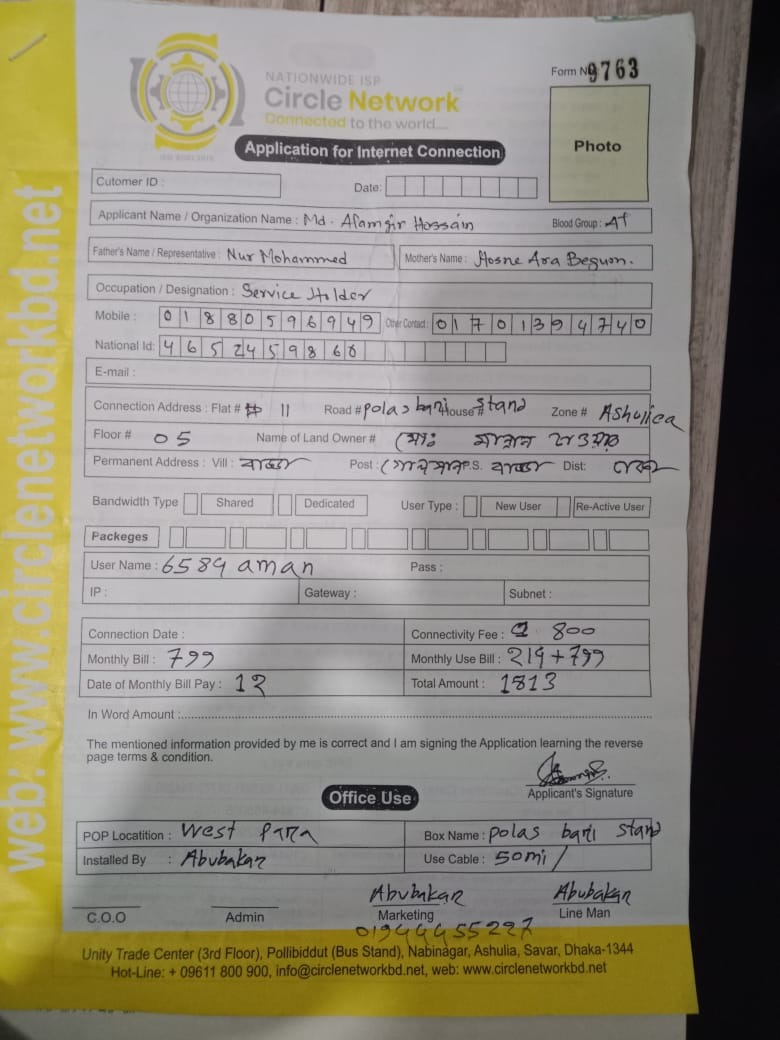 NATIONWIDE ISP
Circle Network
Connected to the world....
Form No 9763
Photo
Application for Internet Connection
Cutomer ID :
Date:
Applicant Name / Organization Name : Md. Alamgir Hossain Blood Group : A+
Father's Name / Representative : Nur Mohammed Mother's Name : Hosne Ara Begum.
Occupation / Designation : Service Holder
Mobile : 01880596949 Other Contact : 01701394740
National Id: 4652459860
E-mail :
Connection Address : Flat # 11 Road # polas bari House # stand Zone # Ashuliea
Floor # 05 Name of Land Owner # মোঃ
Permanent Address : Vill : Post : P.S. Dist:
Bandwidth Type Shared Dedicated User Type : New User Re-Active User
Packeges
User Name : 6589 aman Pass :
IP : Gateway : Subnet :
Connection Date : Connectivity Fee : 800
Monthly Bill : 799 Monthly Use Bill : 219+799
Date of Monthly Bill Pay : 12 Total Amount : 1813
In Word Amount :
The mentioned information provided by me is correct and I am signing the Application learning the reverse
page terms & condition.
Applicant's Signature
Office Use
POP Locatition : West para Box Name : polas bari stand
Installed By : Abubakar Use Cable : 50mi/
Abubakar Abubakar
C.O.O Admin Marketing Line Man
01944455227
Unity Trade Center (3rd Floor), Pollibiddut (Bus Stand), Nabinagar, Ashulia, Savar, Dhaka-1344
Hot-Line: + 09611 800 900, info@circlenetworkbd.net, web: www.circlenetworkbd.net
web: www.circlenetworkbd.net